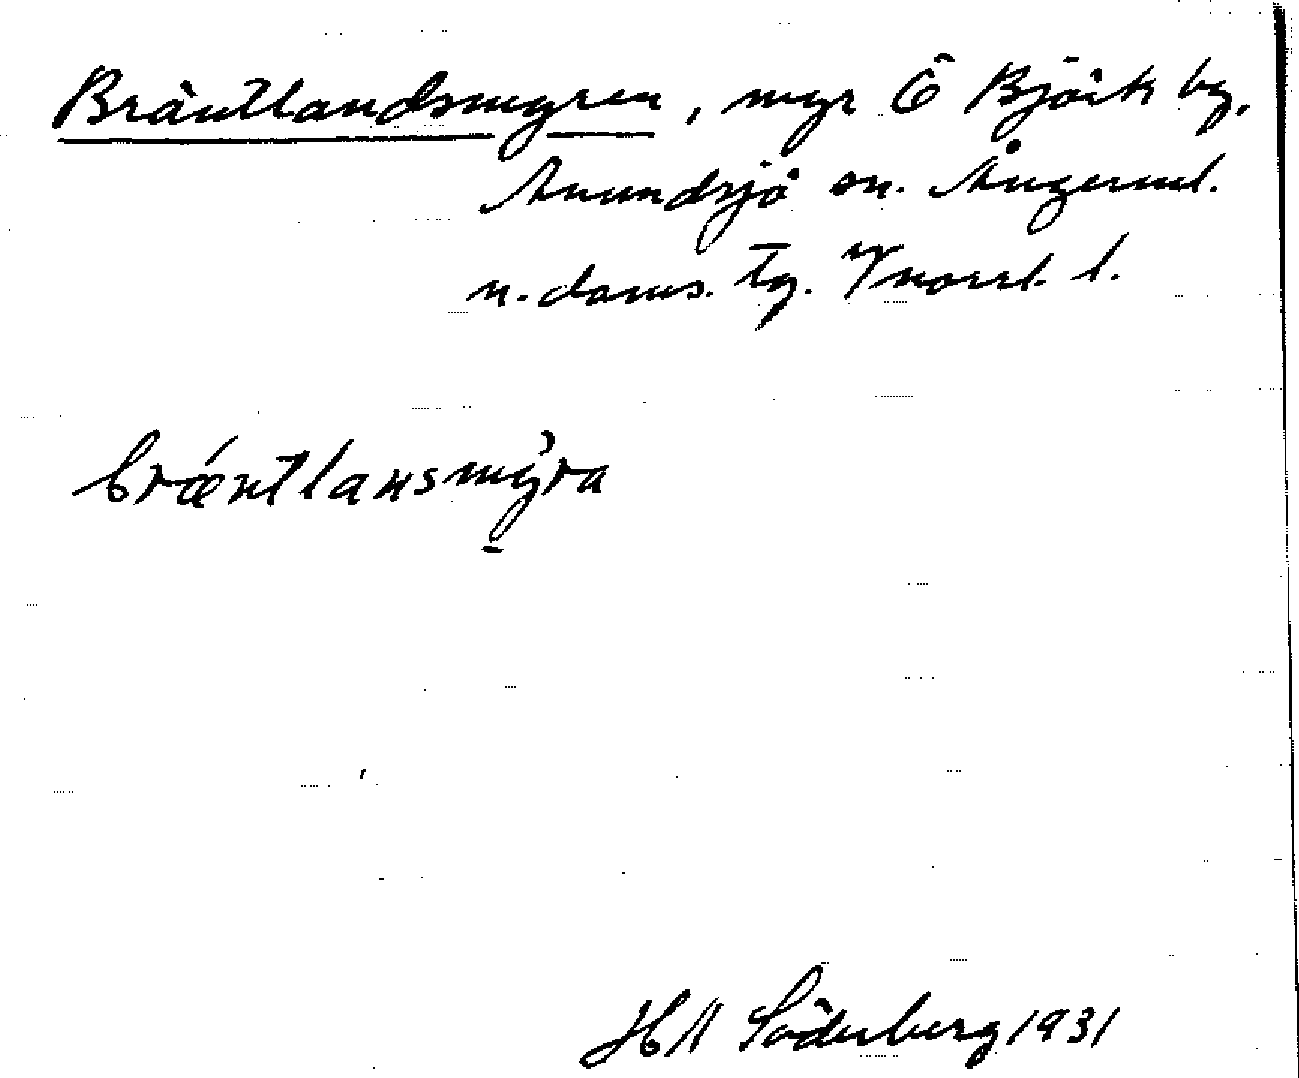 Bräntlandsmyren, myr Ö Björk by,
Anundsjö sn. Ångerml.
n. doms. tg. Vnorrl. l.
brǽntlansmỳra
H A Söderberg 1931